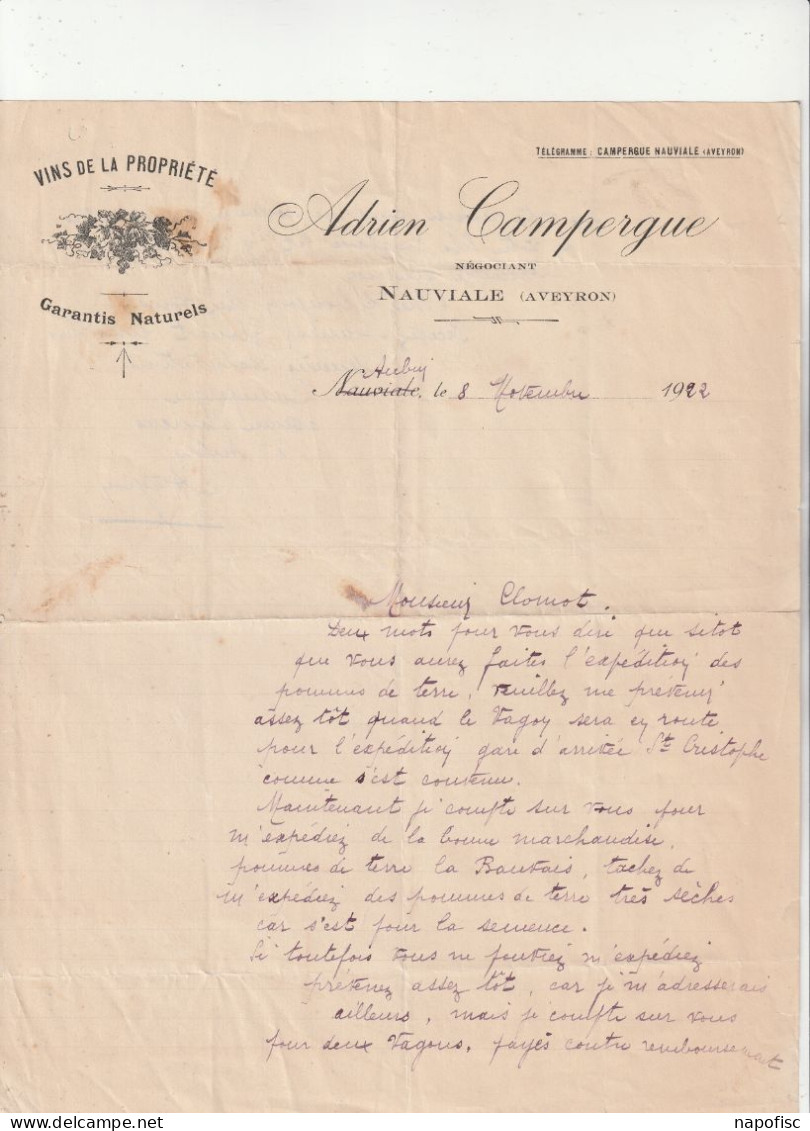 TÉLÉGRAMME : CAMPERGUE NAUVIALE (AVEYRON)
VINS DE LA PROPRIÉTÉ
Garantis Naturels
Adrien Campergue
NÉGOCIANT
NAUVIALE (AVEYRON)
Aubin
Nauviale, le 8 Novembre 1922
Monsieur Clomot.
Deux mots pour vous dire que sitot
que vous aurez faites l'expédition des
pommes de terre, veuillez me prévenir
assez tôt quand le Vagon sera en route
pour l'expédition gare d'arrivée St Cristophe
comme s'est convenu.
Maintenant je compte sur vous pour
m'expédiez de la bonne marchandise,
pommes de terre la Bauvais, tachez de
m'expédiez des pommes de terre très sèches
car s'est pour la semence.
Si toutefois vous ne pouviez m'expédiez
prévenez assez tôt, car je m'adresserais
ailleurs, mais je compte sur vous
pour deux Vagons, payés contre remboursement
napofisc